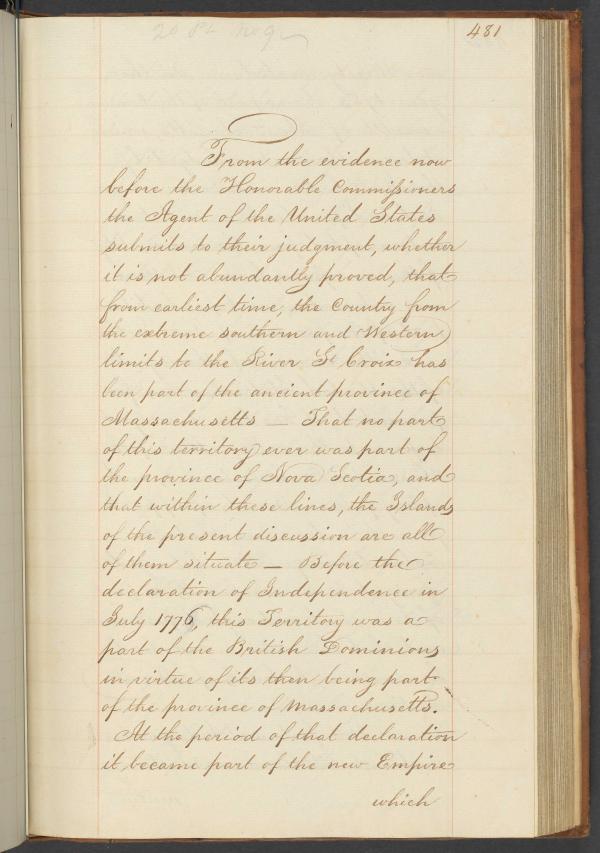 481
From the evidence now
before the Honorable Commissioners
the Agent of the United States
submits to their judgment, whether
it is not abundantly proved, that
from earliest time, the Country from
the extreme southern and Western
limits to the River St Croix has
been part of the ancient province of
Massachusetts — That no part
of this territory ever was part of
the province of Nova Scotia, and
that within these lines, the Islands
of the present discussion are all
of them situate — Before the
declaration of Independence in
July 1776, this Territory was a
part of the British Dominions
in virtue of its then being part
of the province of Massachusetts.
At the period of that declaration
it became part of the new Empire
which